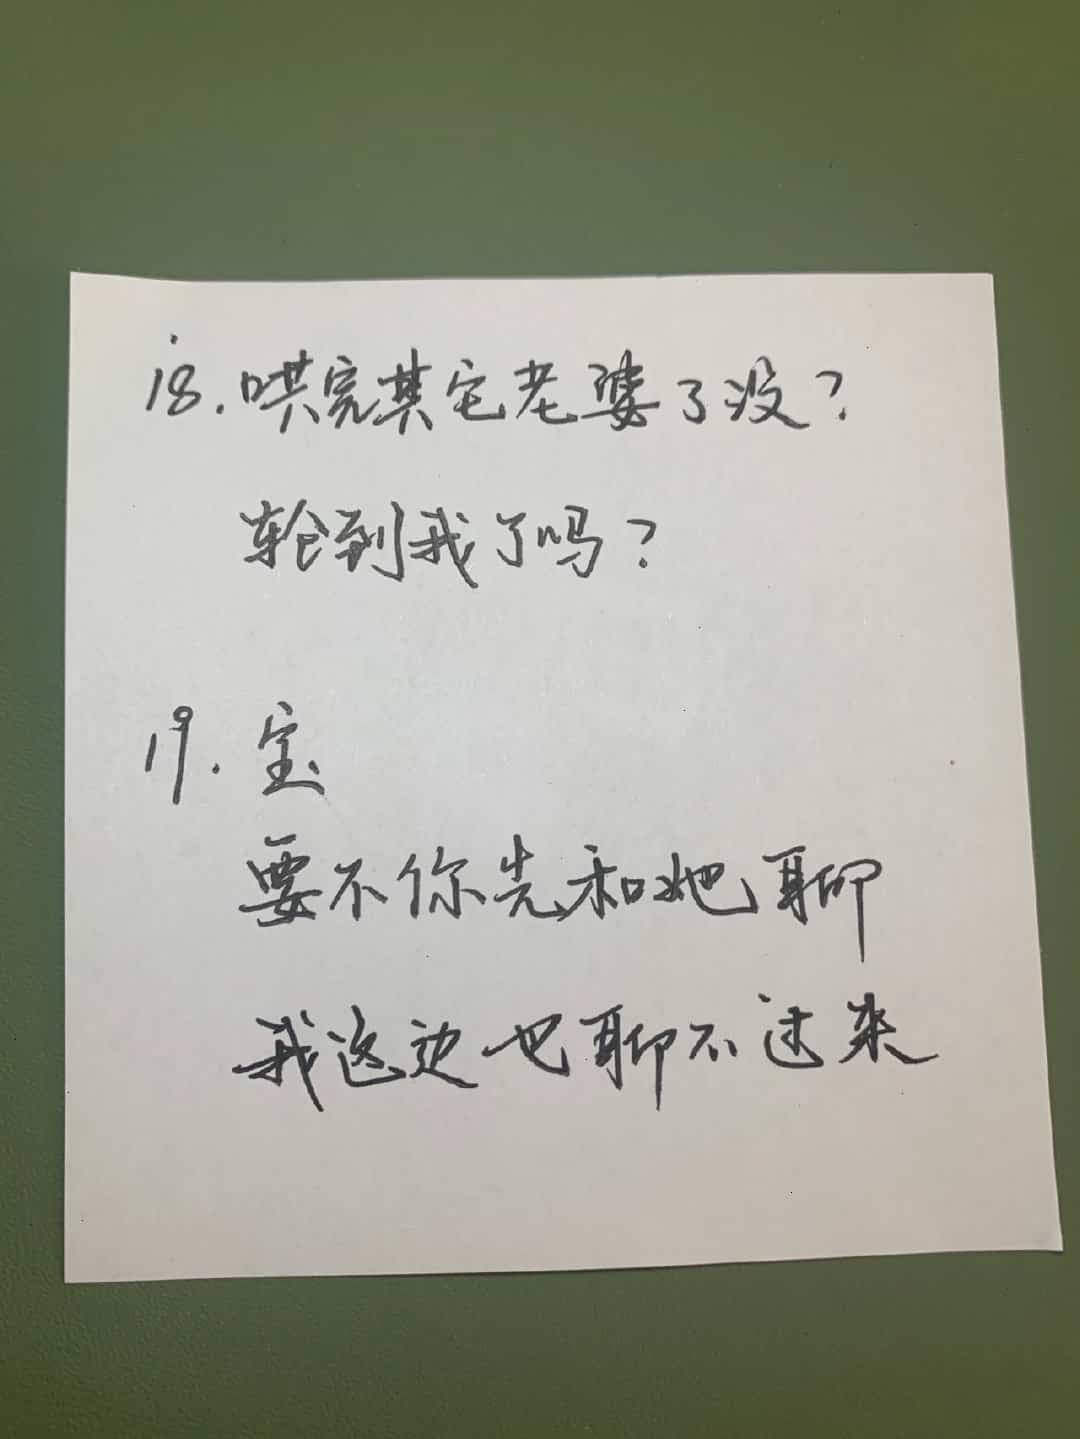 18.哄完其它老婆了没？
轮到我了吗？
19.宝
要不你先和她聊
我这边也聊不过来